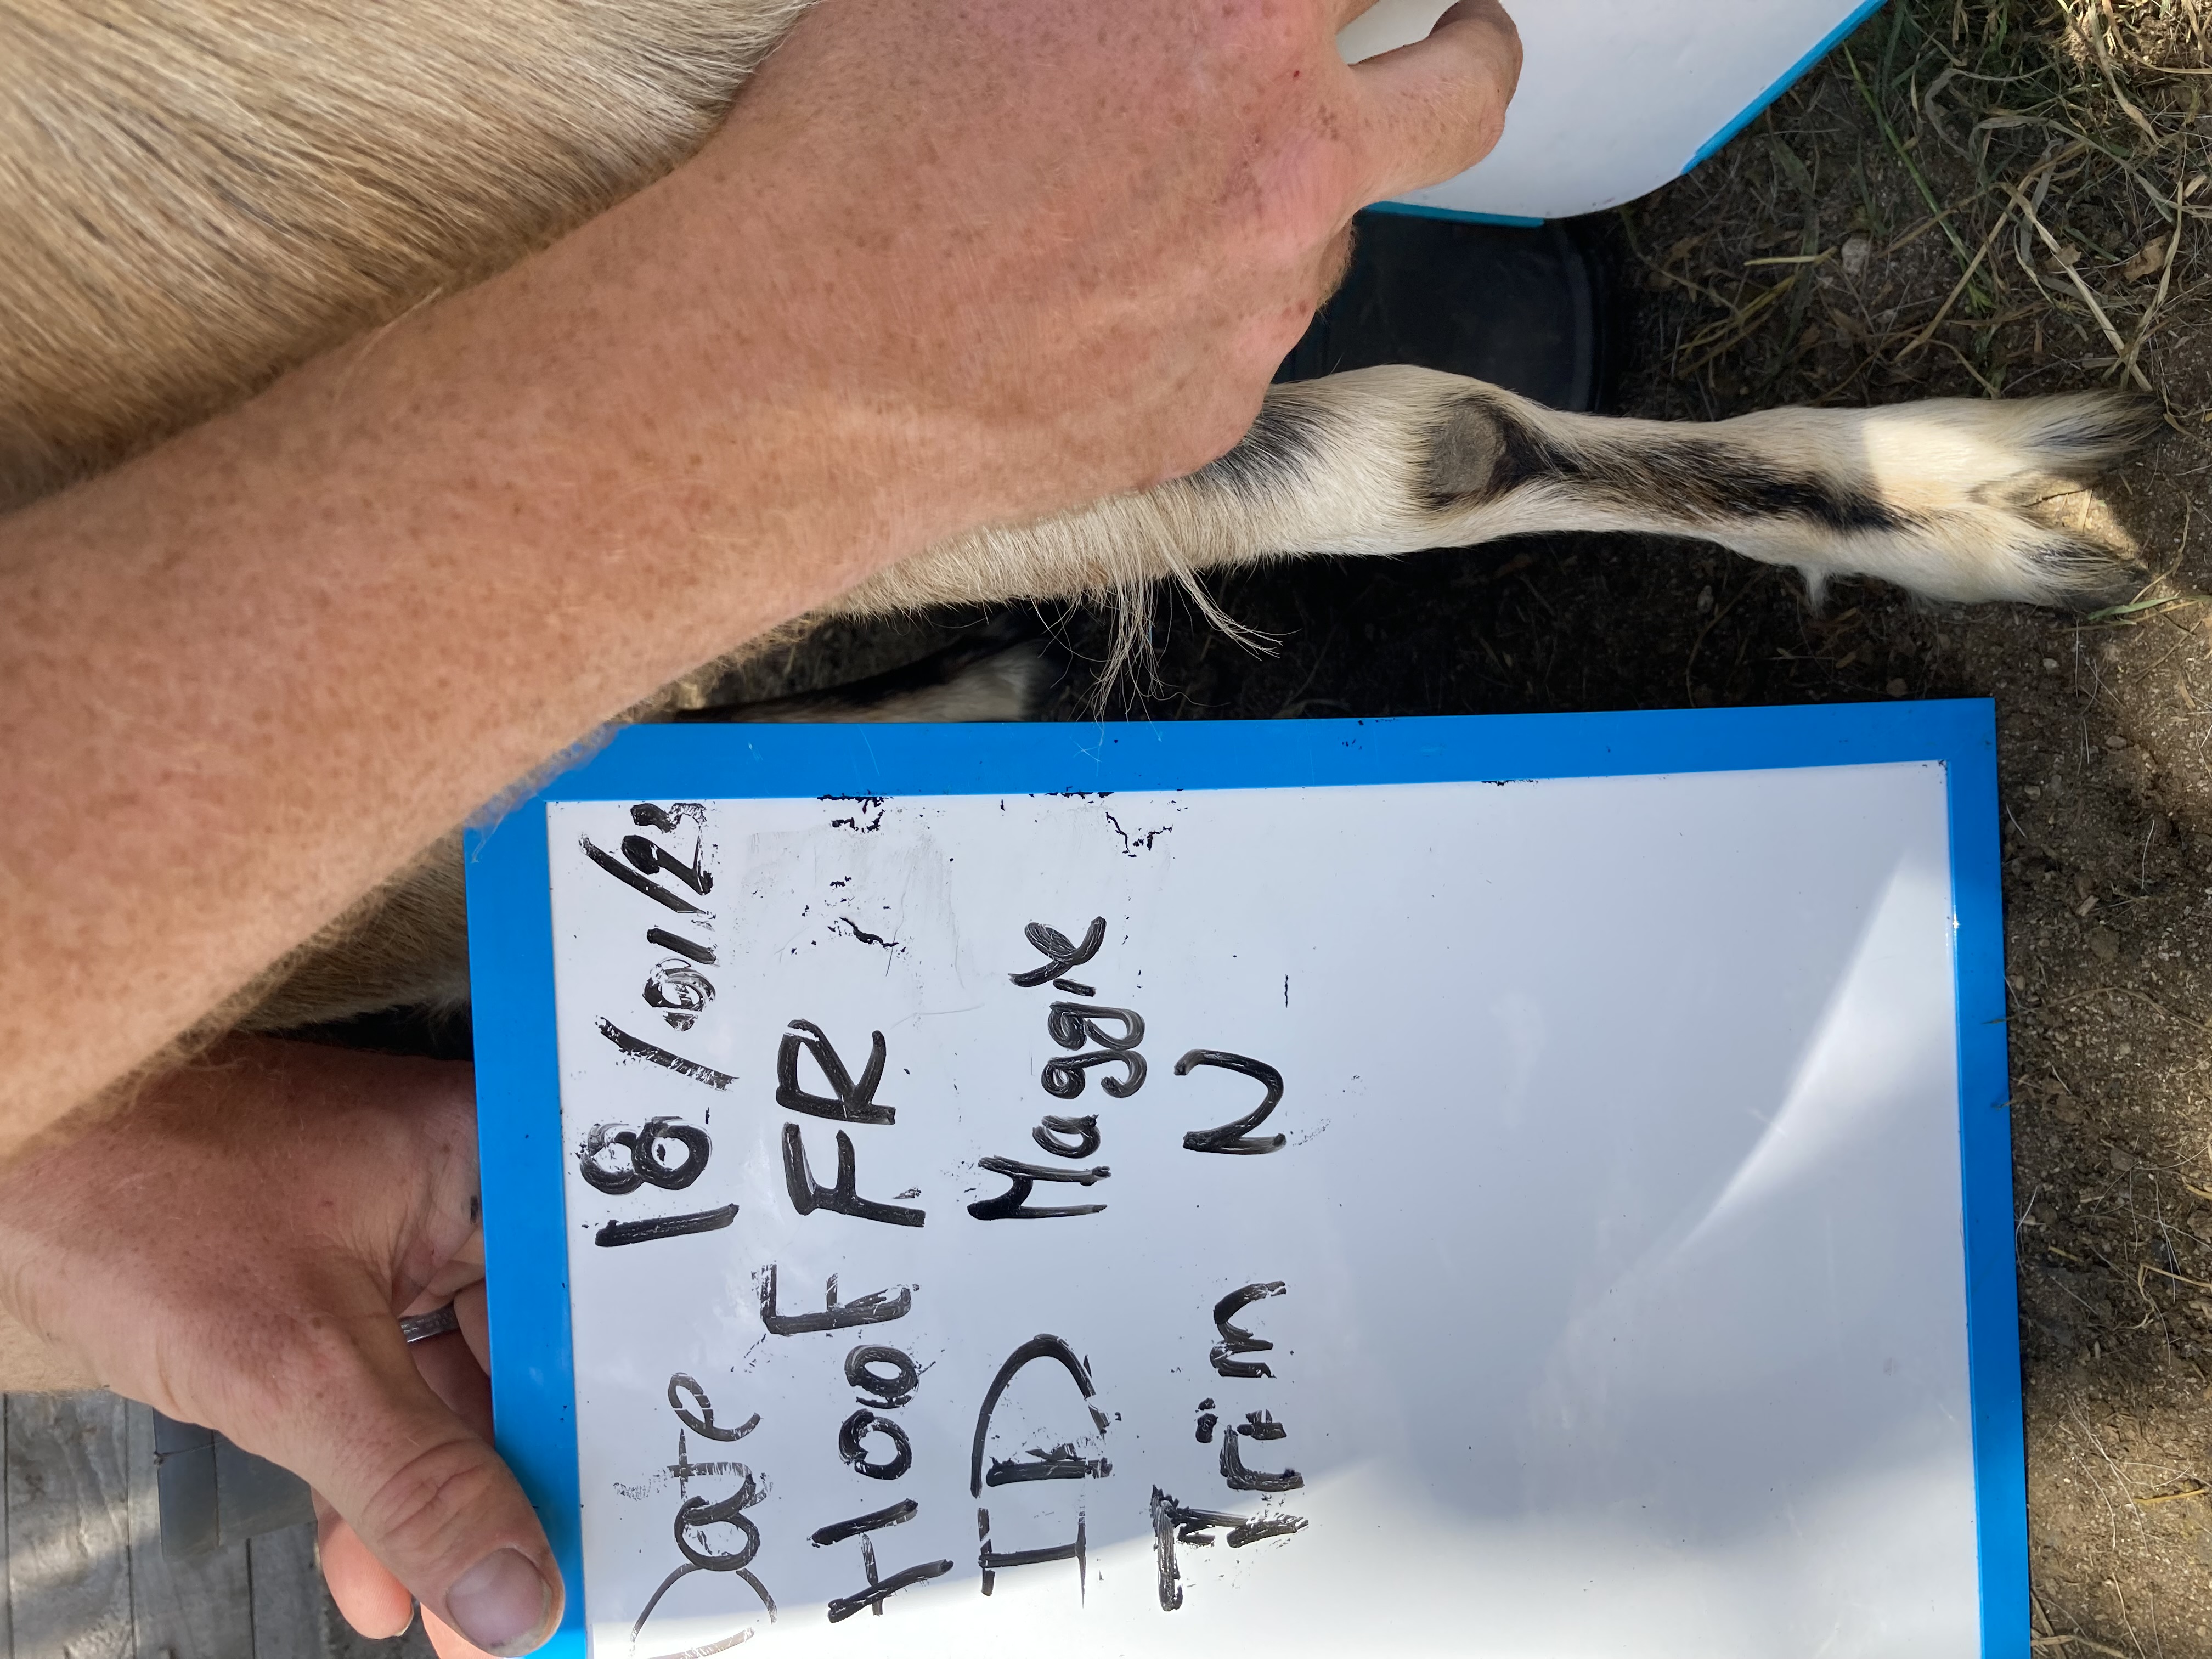 Date 18/01/23
HooF FR
ID Maggie
Trim N